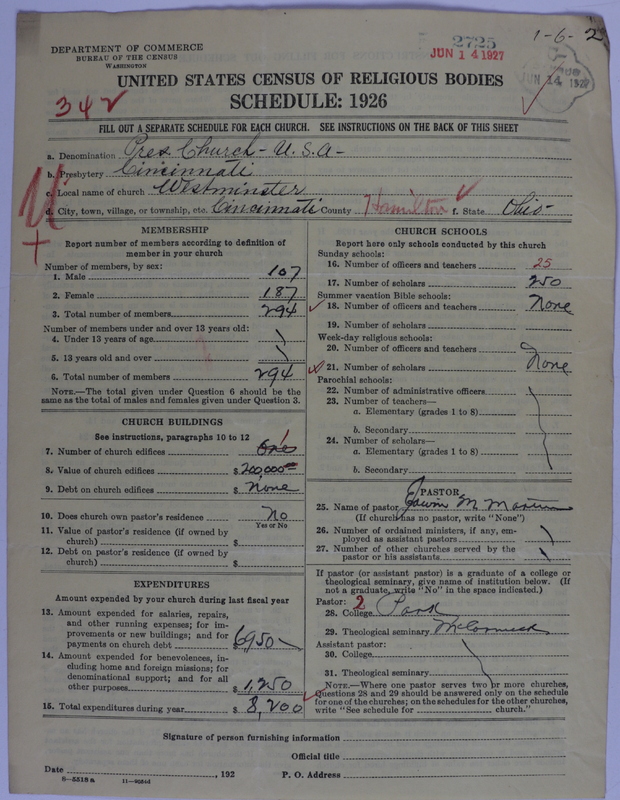 DEPARTMENT OF COMMERCE
BUREAU OF THE CENSUS
WASHINGTON
2725
JUN 14 1927
1-6-2
JUN 14 1927
UNITED STATES CENSUS OF RELIGIOUS BODIES
342
SCHEDULE: 1926
FILL OUT A SEPARATE SCHEDULE FOR EACH CHURCH. SEE INSTRUCTIONS ON THE BACK OF THIS SHEET
a. Denomination Pres. Church - U.S.A -
b. Presbytery Cincinnati
c. Local name of church Westminster
d. City, town, village, or township, etc. Cincinnati County Hamilton f. State Ohio-
MEMBERSHIP
Report number of members according to definition of
member in your church
Number of members, by sex:
1. Male 107
2. Female 187
3. Total number of members 294
Number of members under and over 13 years old:
4. Under 13 years of age
5. 13 years old and over
6. Total number of members 294
NOTE.—The total given under Question 6 should be
same as the total of males and females given under Question 3.
CHURCH BUILDINGS
See instructions, paragraphs 10 to 12
7. Number of church edifices One 1
8. Value of church edifices $ 200,000
9. Debt on church edifices $ None
10. Does church own pastor's residence No
Yes or No
11. Value of pastor's residence (if owned by
church) $
12. Debt on pastor's residence (if owned by
church) $
EXPENDITURES
Amount expended by your church during last fiscal year
13. Amount expended for salaries, repairs,
and other running expenses; for im-
provements or new buildings; and for
payments on church debt $ 6950
14. Amount expended for benevolences, in-
cluding home and foreign missions; for
denominational support; and for all
other purposes $ 1,250
15. Total expenditures during year $ 8,200
CHURCH SCHOOLS
Report here only schools conducted by this church
Sunday schools:
16. Number of officers and teachers 25
17. Number of scholars 250
Summer vacation Bible schools:
18. Number of officers and teachers None
19. Number of scholars
Week-day religious schools:
20. Number of officers and teachers
21. Number of scholars None
Parochial schools:
22. Number of administrative officers
23. Number of teachers—
a. Elementary (grades 1 to 8)
b. Secondary
24. Number of scholars—
a. Elementary (grades 1 to 8)
b. Secondary
PASTOR
25. Name of pastor Edwin M. Martin
(If church has no pastor, write "None")
26. Number of ordained ministers, if any, em-
ployed as assistant pastors
27. Number of other churches served by the
pastor or his assistants
If pastor (or assistant pastor) is a graduate of a college or
theological seminary, give name of institution below. (If
not a graduate, write "No" in the space indicated.)
Pastor: 2
28. College Park
29. Theological seminary McCormick
Assistant pastor:
30. College
31. Theological seminary
NOTE.—Where one pastor serves two or more churches,
Questions 28 and 29 should be answered only on the schedule
for one of the churches; on the schedules for the other churches,
write "See schedule for church."
Signature of person furnishing information
Official title
Date , 192 P. O. Address